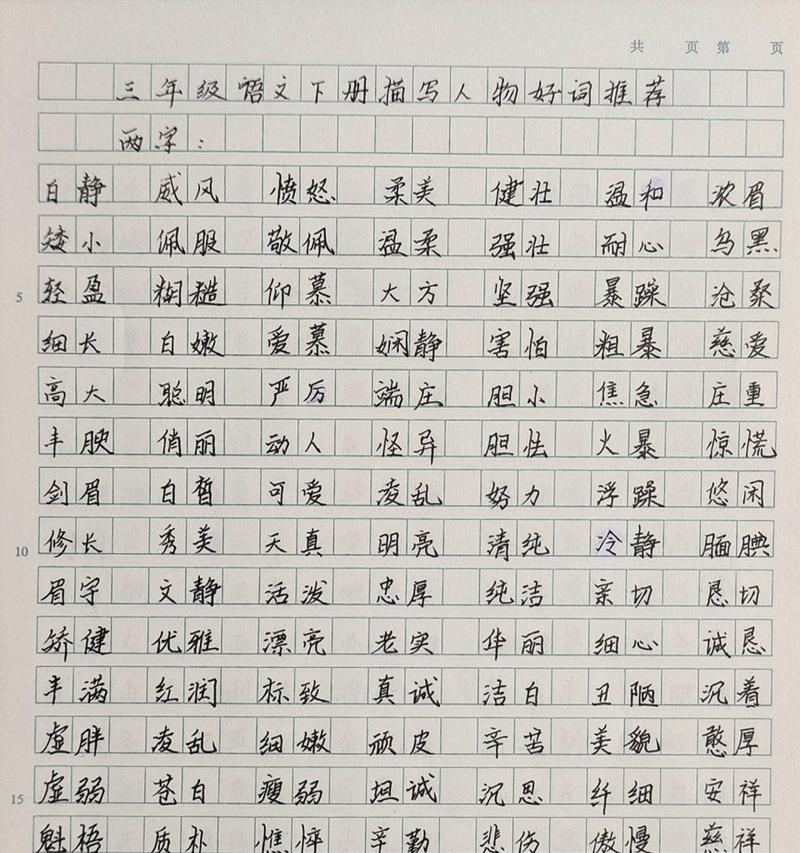 共 页 第 页
三年级语文下册描写人物好词推荐
两字：
白静 威风 愤怒 柔美 健壮 温和 浓眉
矮小 佩服 敬佩 温柔 强壮 耐心 乌黑
5 轻盈 糊糙 仰慕 大方 坚强 暴躁 沧桑
细长 白嫩 爱慕 娴静 害怕 粗暴 慈爱
高大 聪明 严厉 端庄 胆小 焦急 庄重
丰腴 俏丽 动人 怪异 胆怯 火暴 惊慌
剑眉 白皙 可爱 凌乱 努力 浮躁 悠闲
10 修长 秀美 天真 明亮 清纯 冷静 腼腆
眉宇 文静 活泼 忠厚 纯洁 亲切 恳切
矫健 优雅 漂亮 老实 华丽 细心 诚恳
丰满 红润 标致 真诚 洁白 丑陋 沉着
虚胖 凌乱 细嫩 顽皮 辛苦 美貌 憨厚
15 虚弱 苍白 瘦弱 坦诚 沉思 纤细 安祥
魁梧 质朴 憔悴 辛勤 悲伤 傲慢 慈祥